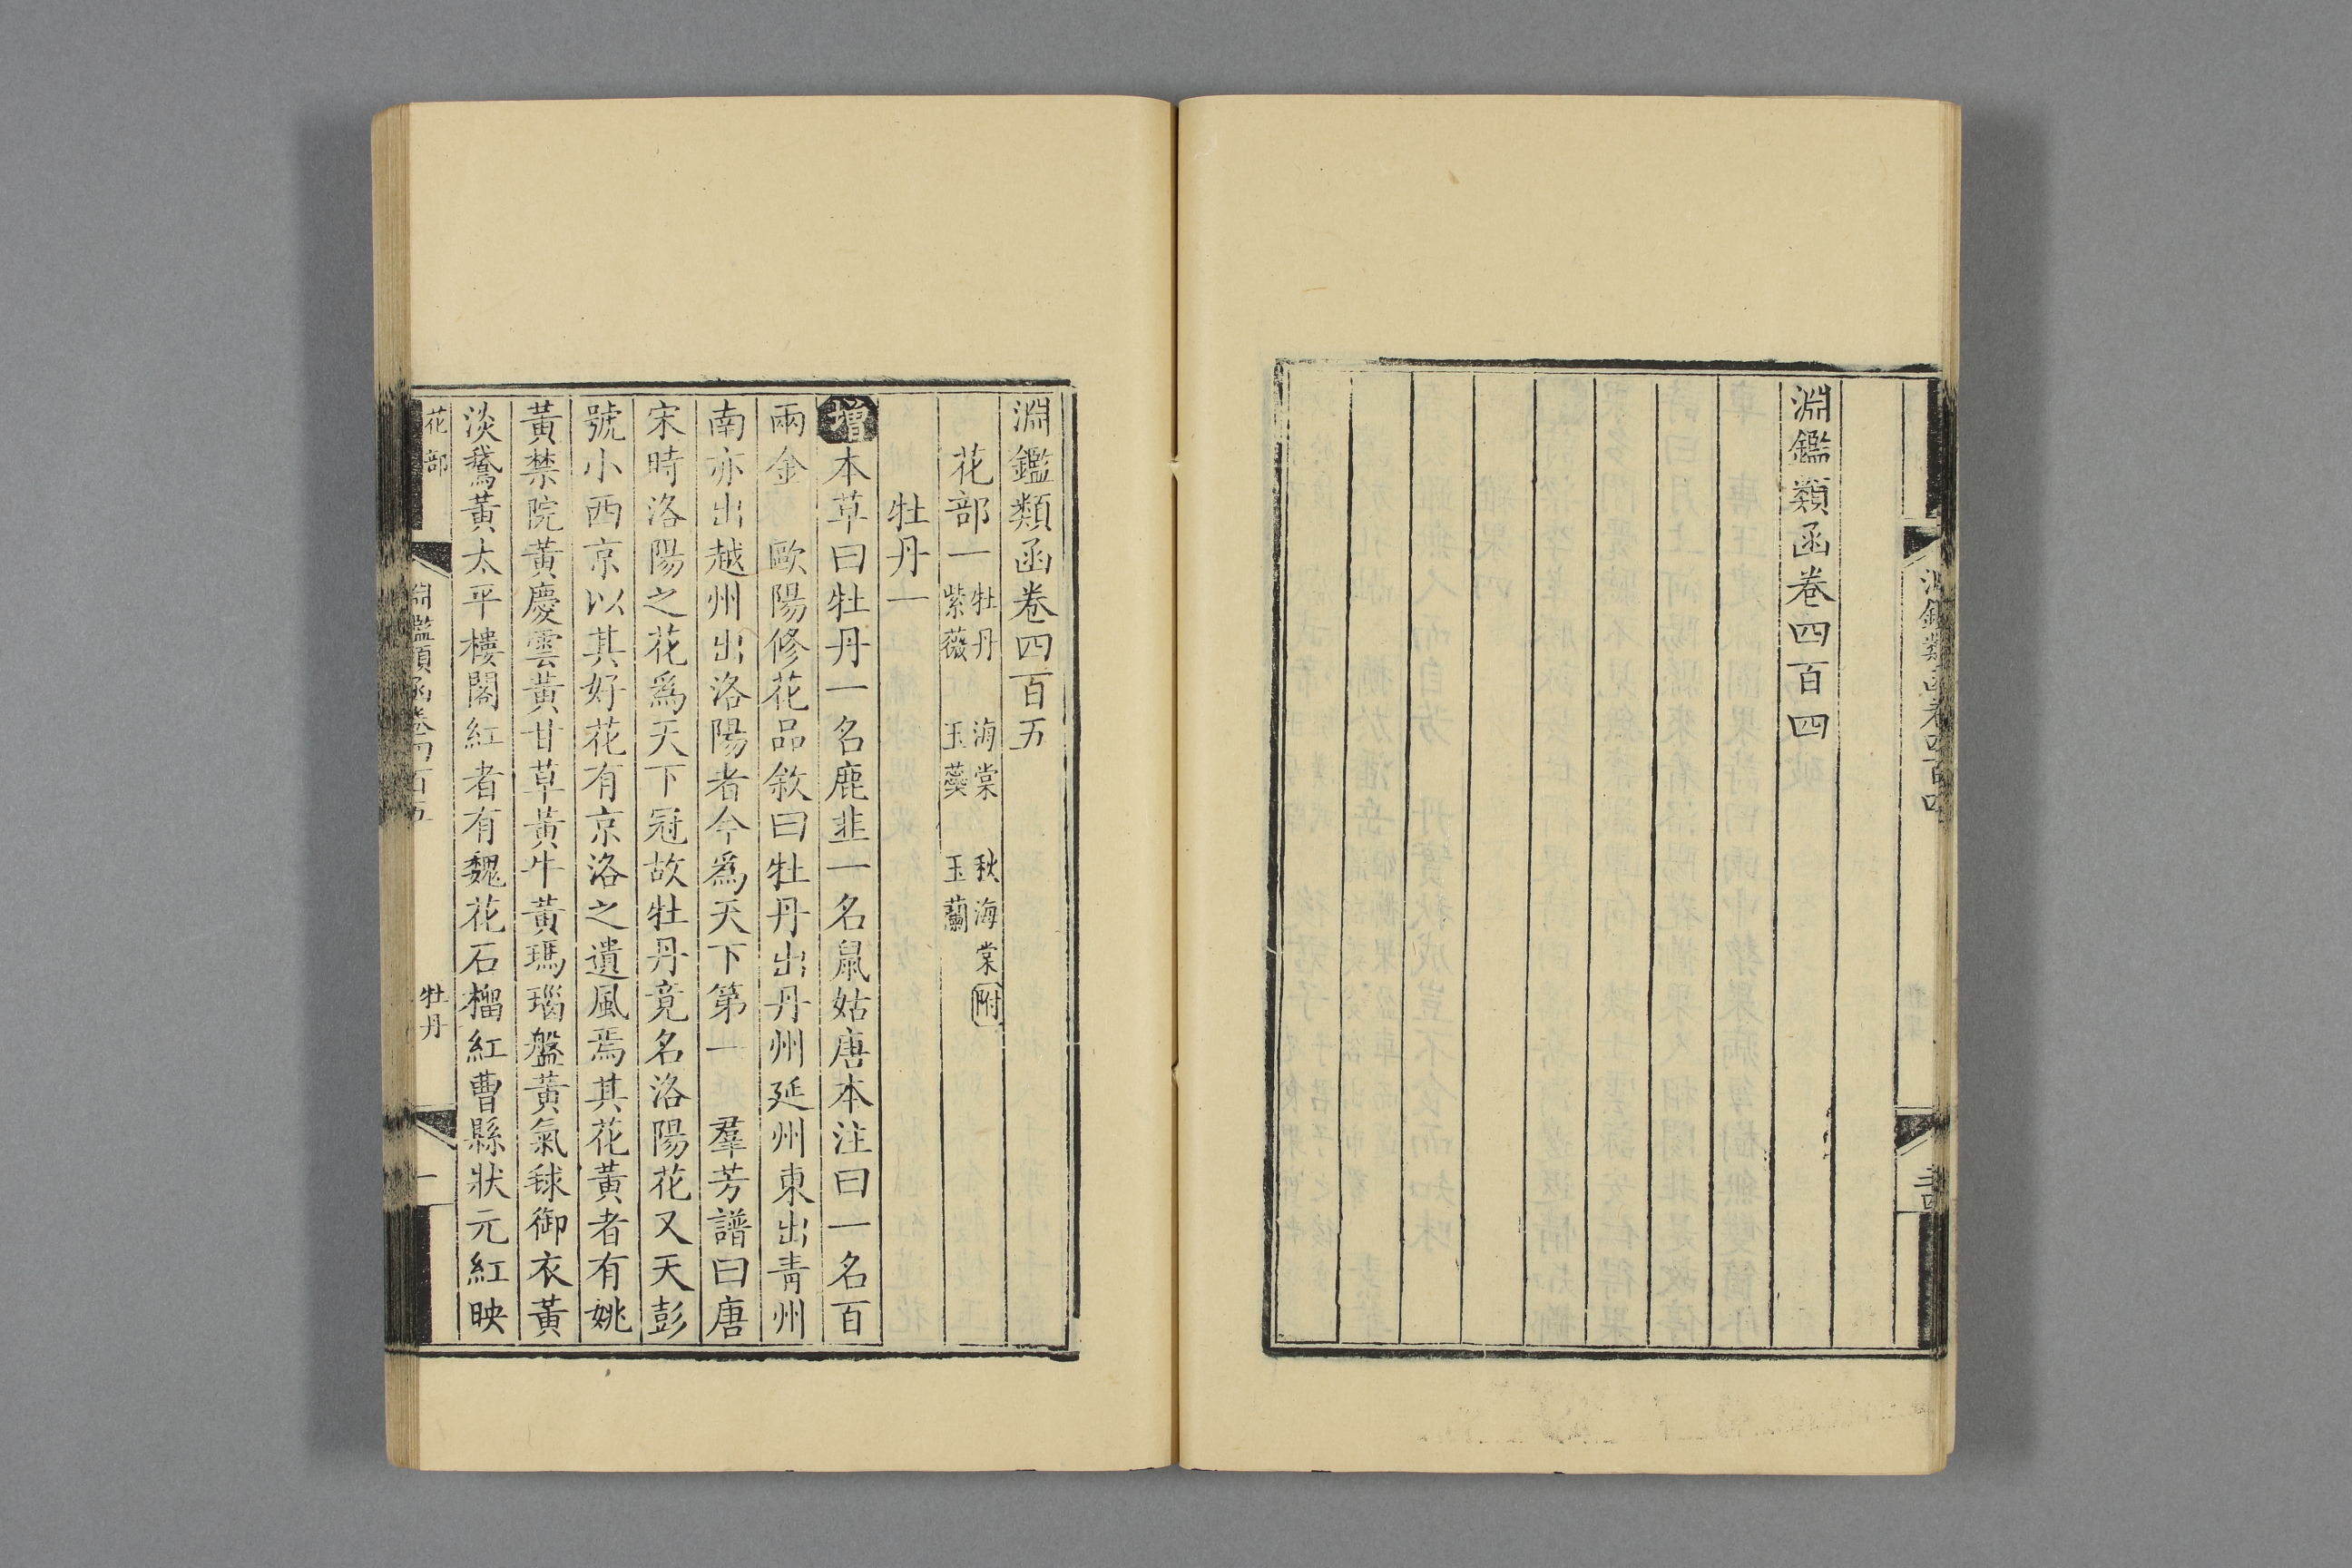 淵鑑類函卷四百四
淵鑑類函卷四百四
淵鑑類函卷四百五
花部一 牡丹 海棠 秋海棠附
紫薇 玉蘂 玉蘭
牡丹一
增本草曰牡丹一名鹿韭一名鼠姑唐本注曰一名百
兩金 歐陽修花品敘曰牡丹出丹州延州東出青州
南亦出越州出洛陽者今爲天下第一 羣芳譜曰唐
宋時洛陽之花爲天下冠故牡丹竟名洛陽花又天彭
號小西京以其好花有京洛之遺風焉其花黃者有姚
黃禁院黃慶雲黃甘草黃牛黃瑪瑙盤黃氣毬御衣黃
淡鵞黃太平樓閣紅者有魏花石榴紅曹縣狀元紅映
花部 淵鑑類函卷四百五 牡丹 一